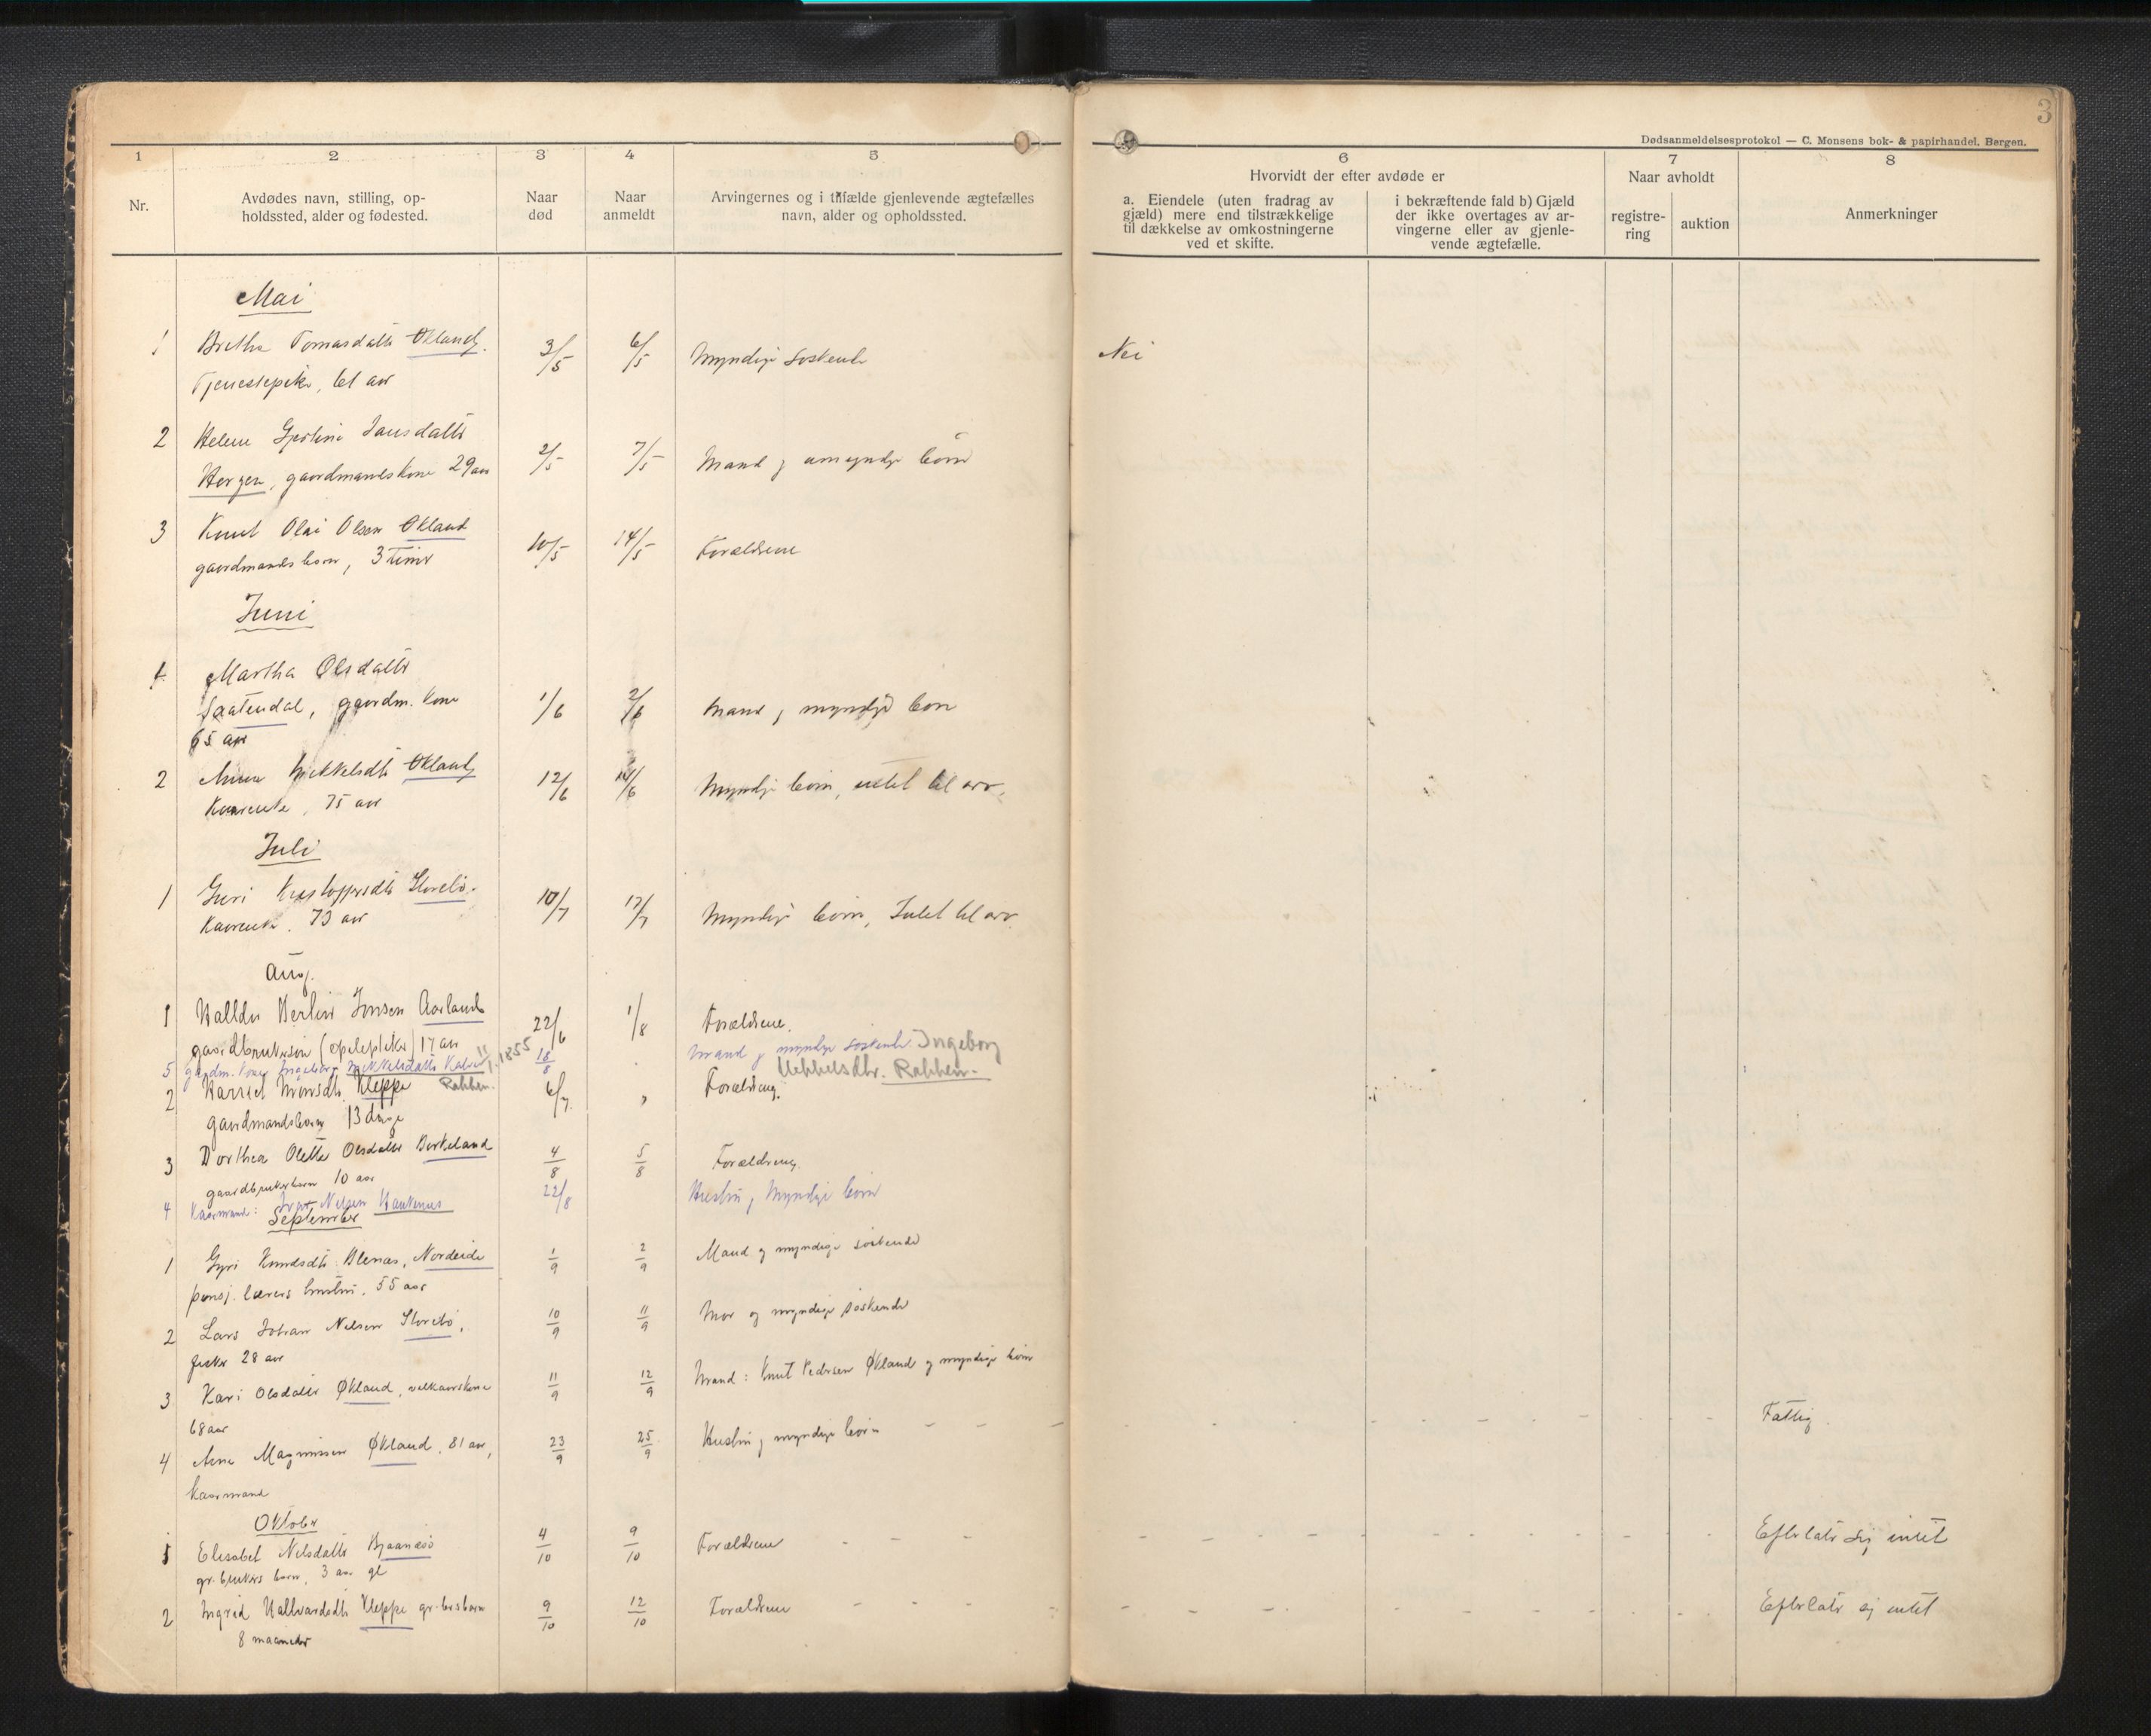 3
Dødsanmeldelsesprotokol — C. Monsens bok- & papirhandel, Bergen.
1 2 3 4 5 6 7 8
Nr.
Avdødes navn, stilling, op-
holdssted, alder og fødested.
Naar
død
Naar
anmeldt
Arvingernes og i tilfælde gjenlevende ægtefælles
navn, alder og opholdssted.
Hvorvidt der efter avdøde er
a. Eiendele (uten fradrag av
gjæld) mere end tilstrækkelige
til dækkelse av omkostningerne
ved et skifte.
i bekræftende fald b) Gjæld
der ikke overtages av ar-
vingerne eller av gjenle-
vende ægtefælle.
Naar avholdt
registre-
ring
auktion
Anmerkninger
Mai
1 Bretha Tomasdatter Økland, 3/5 6/5 Myndige søskende Nei
Tjenestepike, 61 aar
2 Helene Jansdatter
Horgen, gaardmandskone 29 aar 2/5 7/5 Mand og umyndige børn
3 Knut Olai Olsen Økland 10/5 14/5 Forældrene
gaardmandsbarn, 3 timer
Juni
1 Martha Olsdatter
Saatendal, gaardm. kone 1/6 2/6 Mand og myndige børn
65 aar
2 Anna Mikkelsdtr Økland, 12/6 Myndige børn, intet til arv.
Kaarenke, 75 aar
Juli
1 Guri Kristoffersdtr Storebø. 10/7 17/7 Myndige børn, Intet til arv.
Kaarenke. 73 aar
Aug.
1 Halldor Berlin Jonsen Aarland 22/6 1/8 Forældrene.
gaardbrukersøn (epileptiker) 17 aar
5 gaardm. kone Ingeborg Mikkelsdatter 11/1.1855 18/8 Mand og myndige søskende Ingeborg
Mikkelsdtr. Rabben.
2 Harriet Monsdtr. Kleppe Rabben. 6/7 " Forældrene.
gaardmandsbarn 13 dage
3 Dorthea Olette Olsdatter Birkeland 4/8 5/8 Forældrene.
gaardbrukerbarn 10 aar
4 Kaarmand: Ivar Nelsen Haukenæs 22/8 Hustru og Myndige børn
September
1 Gyri Knudsdtr Blenæs, Nordeide 1/9 2/9 Mand og myndige søskende
pensj. lærers hustru, 55 aar
2 Lars Johan Nelsen Storebø, 10/9 11/9 Mor og myndige søskende
fisker 28 aar
3 Kari Olsdatter Økland, 11/9 12/9 Mand: Knut Pedersen Økland og myndige børn
68 aar
4 Arne Magnussen Økland, 81 aar, 23/9 25/9 Hustru og myndige børn - - - Fattig.
Kaarmand
Oktober
1 Elisabet Nilsdatter Bjaanesø 4/10 9/10 Forældrene - - - Efterlater sig intet
gr. brukers barn, 3 aar gl
2 Ingrid Hallvardsdtr Kleppe gr. brs barn 9/10 12/10 Forældrene - - - Efterlater sig intet
8 maaneder